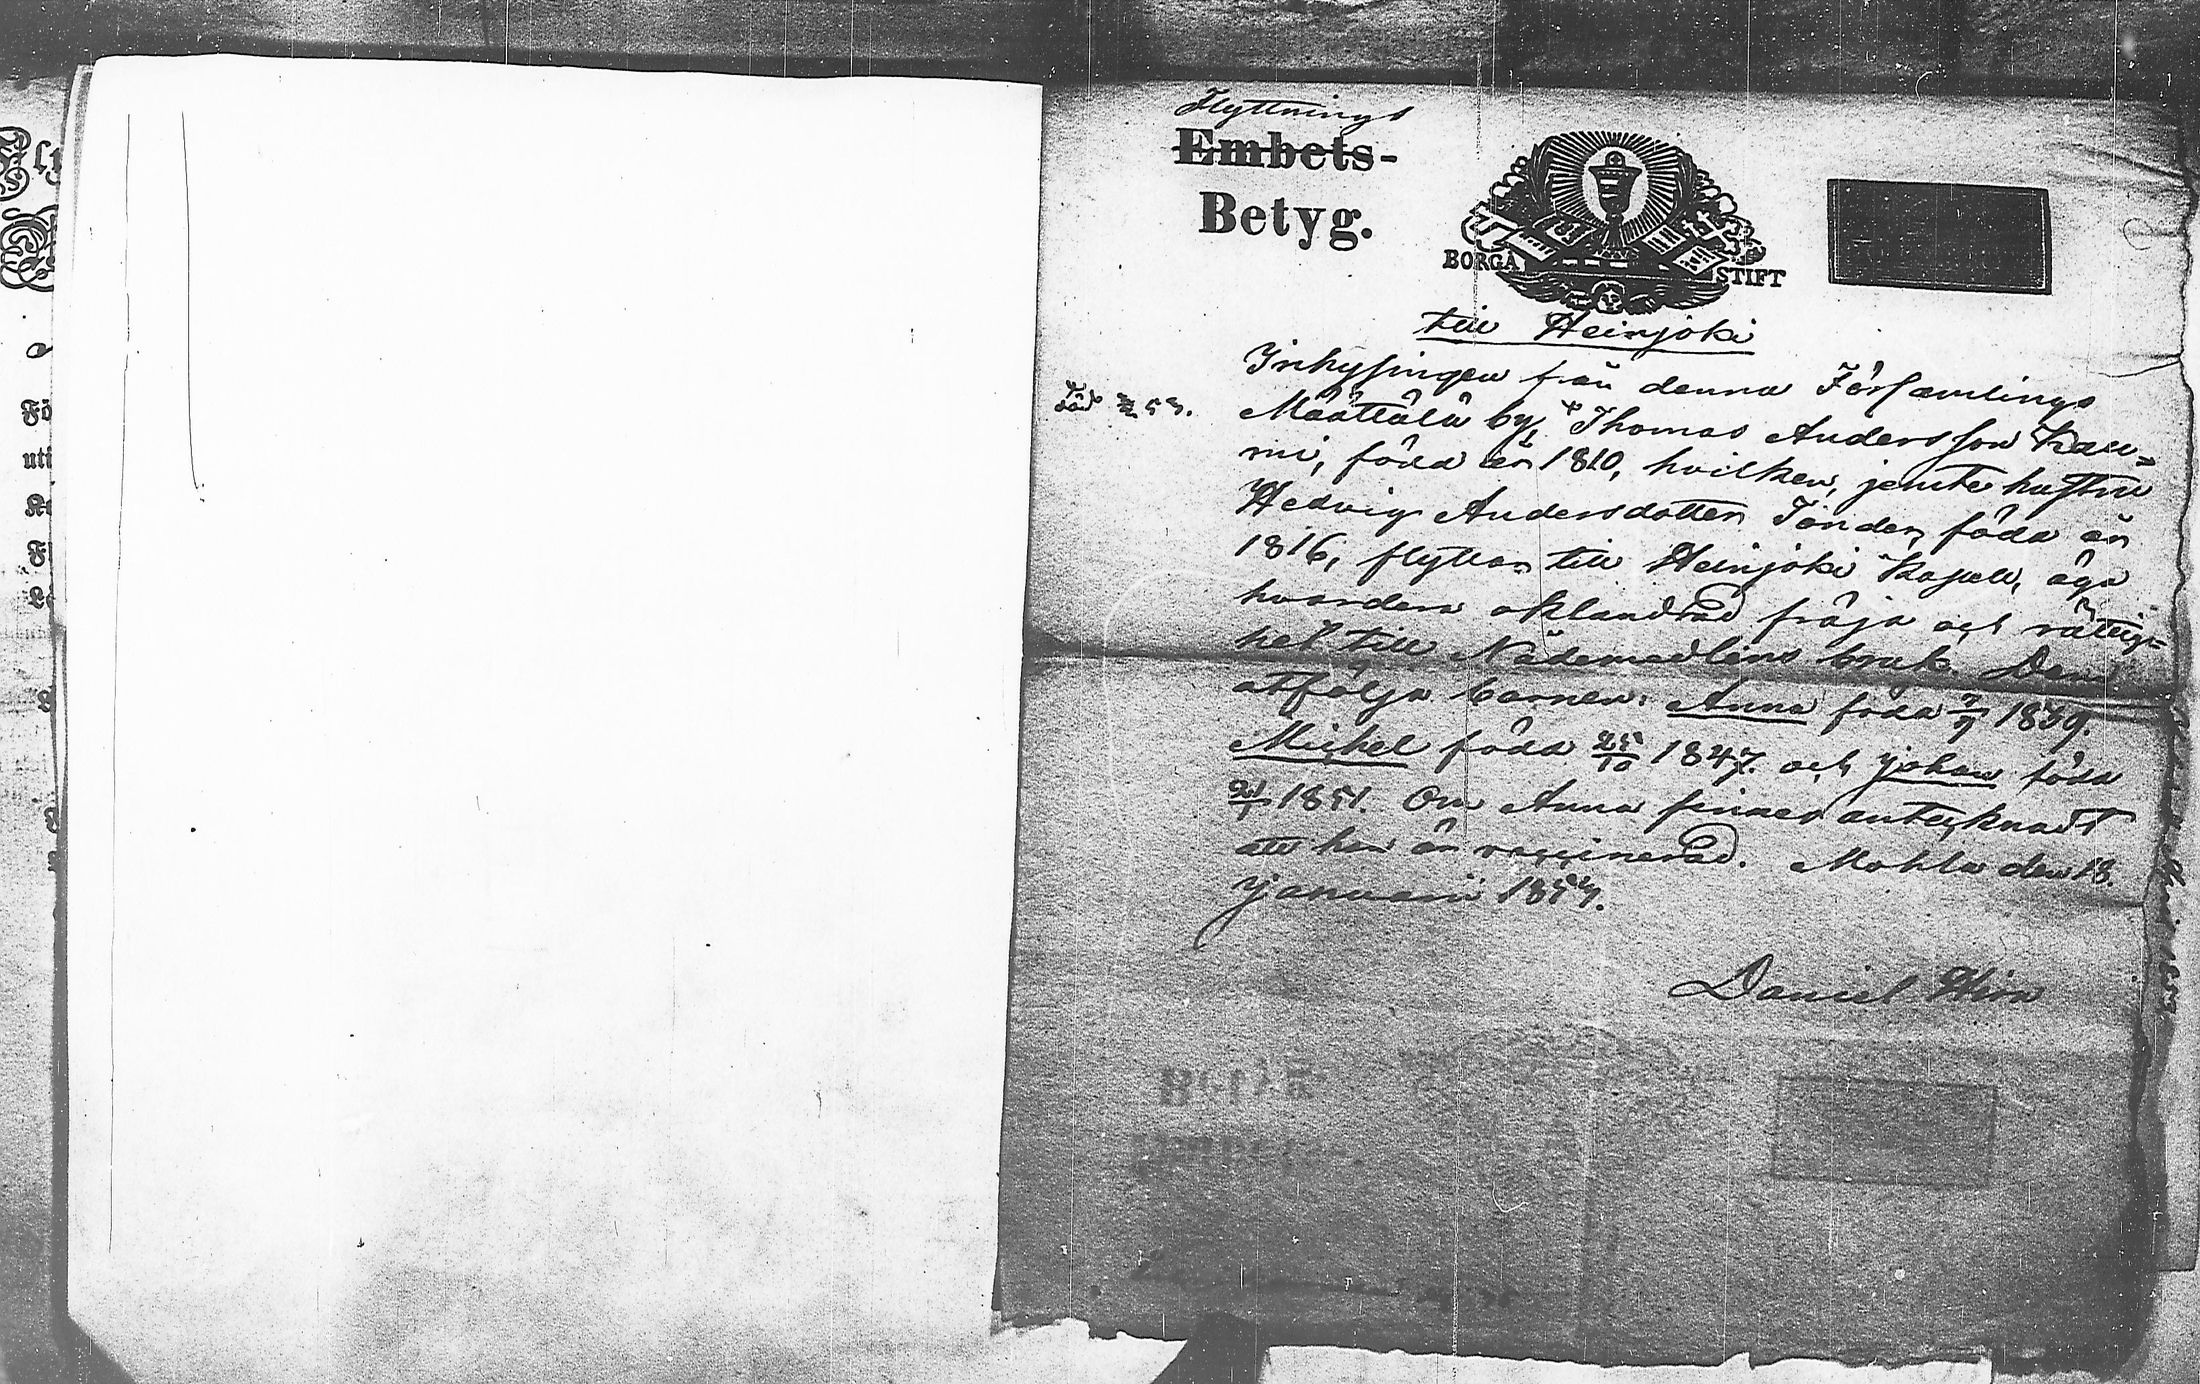 Flyttnings
Embets-
Betyg.
BORGÅ STIFT
till Heinjoki
Inhysingen från denna Församlings
Död 53.
Määttälä by, Thomas Andersson Kau=
mi, född år 1810, hvilken, jemte hustru
Hedvig Andersdotter Tönder, född år
1816, flyttar till Heinjoki Kapell, äga
hvardera oklandrad fräjd och rättig=
het till Nådemedlens bruk. Dem
åtfölja barnen: Anna född 7/9 1839.
Michel född 25/10 1847. och Johan född
21/1 1851. Om Anna finnes anteknadt
att hon är vaccinerad. Mohla den 18.
Januarii 1853.
Daniel Hirn